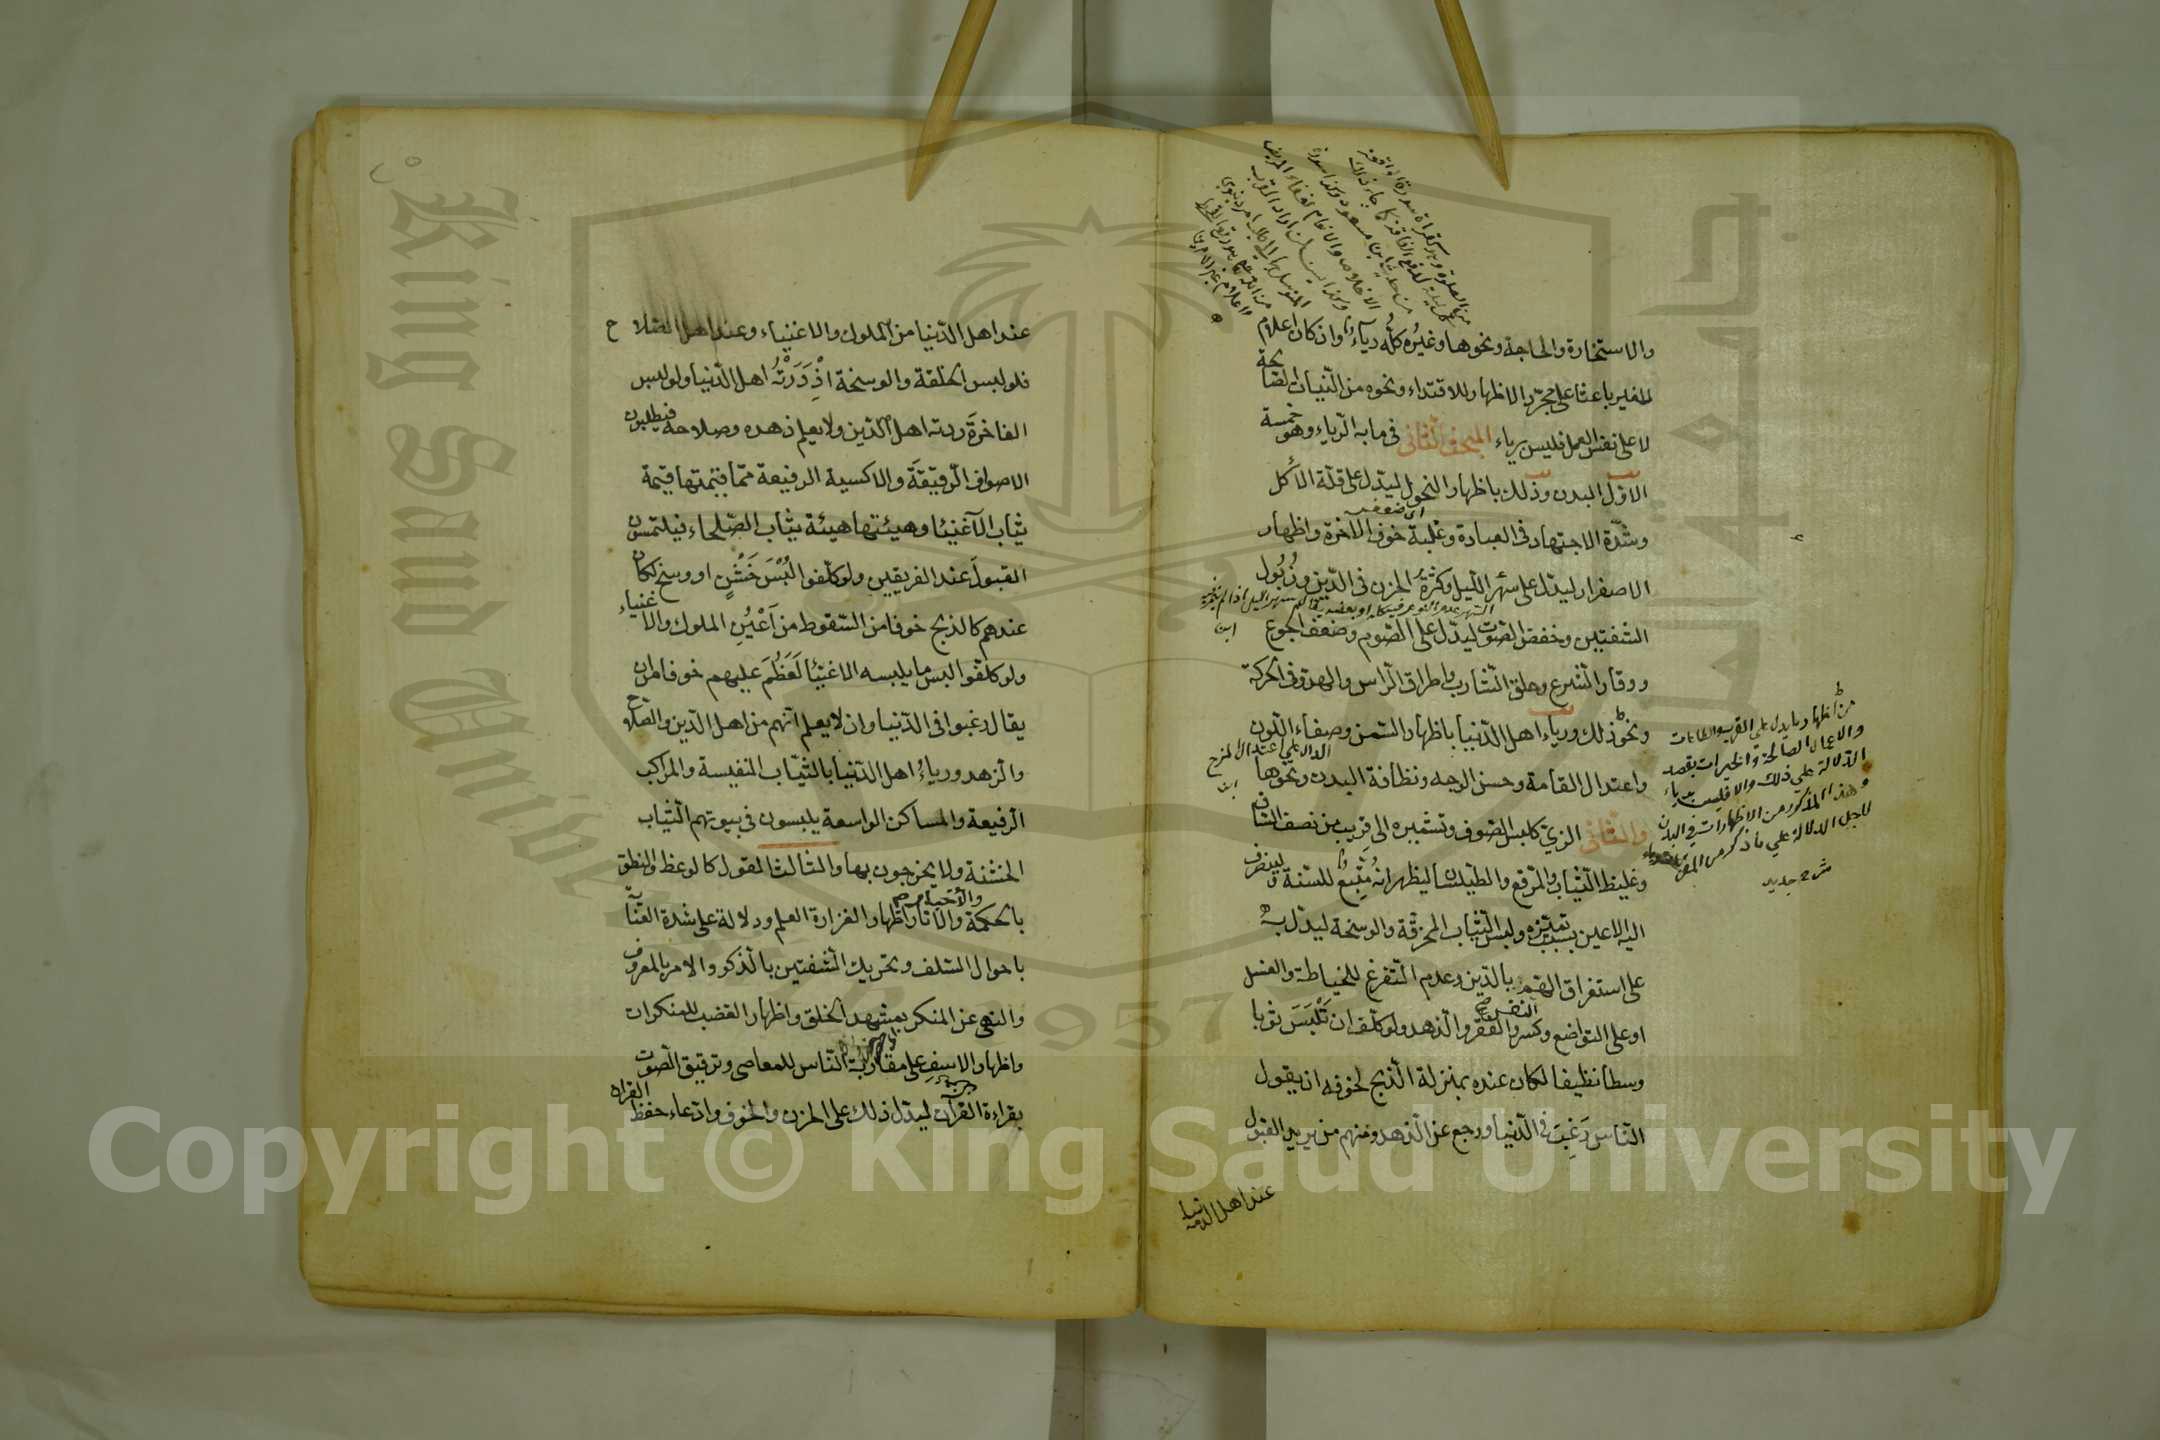 والاستخارة والحاجة ونحوها وغيره كله رياء وان كان اعلام
للغير باعثا على مجرد الاظهار للاقتداء ونحوه من النيات الصالحة
لا على نفس العمل فليس برياء المبحث الثانى فى ما به الرياء وهو خمسة
الاول البدن وذلك باظهار النحول ليدل على قلة الأكل
وشدة الاجتهاد فى العبادة وغلبة خوف الاخرة واظهار
الاصفرار ليدل على سهر الليل وكثرة الحزن فى الدين وذبول
الشفتين وخفض الصوت ليدل على الصوم وضعف الجوع
ووقار الشرع وحلق الشارب واطراق الراس والهدو فى الحركة
ونحو ذلك ورياء اهل الدنيا باظهار السمن وصفاء اللون
واعتدال القامة وحسن الوجه ونظافة البدن ونحوها
والثانى الزي كلبس الصوف وتشميره الى قريب من نصف الساق
وغليظ الثياب والمرقع والطيلسان ليظهر انه متبع للسنة ولينصرف
اليه الاعين بسبب تميزه ولبس الثياب المخرقة والوسخة ليدل به
على استغراق الهم بالدين وعدم التفرغ للخياطة والغسل
او على التواضع وكسر النفس والفقر والزهد ولو كلف ان تلبس ثوبا
وسطا نظيفا لكان عنده بمنزلة الذبح لخوفه ان يقول
الناس رغب فى الدنيا ورجع عن الزهد ومنهم من يريد القبول
عند اهل الدنيا
من اظهار ما يدل على القرب والطاعات
والاعمال الصالحة والخيرات بقصد
الدلالة على ذلك والا فليس برياء
وهذا المذكور من الاظهارات فى البدن
لاجل الدلالة على ما ذكر من
عند اهل الدنيا من الملوك والاغنياء وعند اهل الصلاح
فلو لبس الخلقة والوسخة اذدرته اهل الدنيا ولو لبس
الفاخرة ردته اهل الدين ولا يعلم زهده وصلاحه فيطلبون
الاصواف الرقيقة والاكسية الرفيعة مما قيمتها قيمة
ثياب الاغنيا وهيئتها هيئة ثياب الصلحاء فيلتمسون
القبول عند الفريقين ولو كلفوا لبس خشن او وسخ لكان
عندهم كالذبح خوفا من السقوط من اعين الملوك والاغنياء
ولو كلفوا لبس ما يلبسه الاغنيا لعظم عليهم خوفا من ان
يقال رغبوا فى الدنيا وان لا يعلم انهم من اهل الدين والصلاح
والزهد ورياء اهل الدنيا بالثياب النفيسة والمراكب
الرفيعة والمساكن الواسعة يلبسون فى بيوتهم الثياب
الخشنة ولا يخرجون بها والثالث القول كالوعظ والنطق
بالحكمة والاثار اظهارا لغزارة العلم ودلالة على شدة العناية
باحوال السلف وتحريك الشفتين بالذكر والامر بالمعروف
والنهى عن المنكر بمشهد الخلق واظهار الغضب للمنكرات
واظهار الاسف على مقاربة الناس للمعاصى وترقيق الصوت
بقراءة القرآن ليدل ذلك على الحزن والخوف وادعاء حفظ القران
Copyright © King Saud University
King Saud University
1957